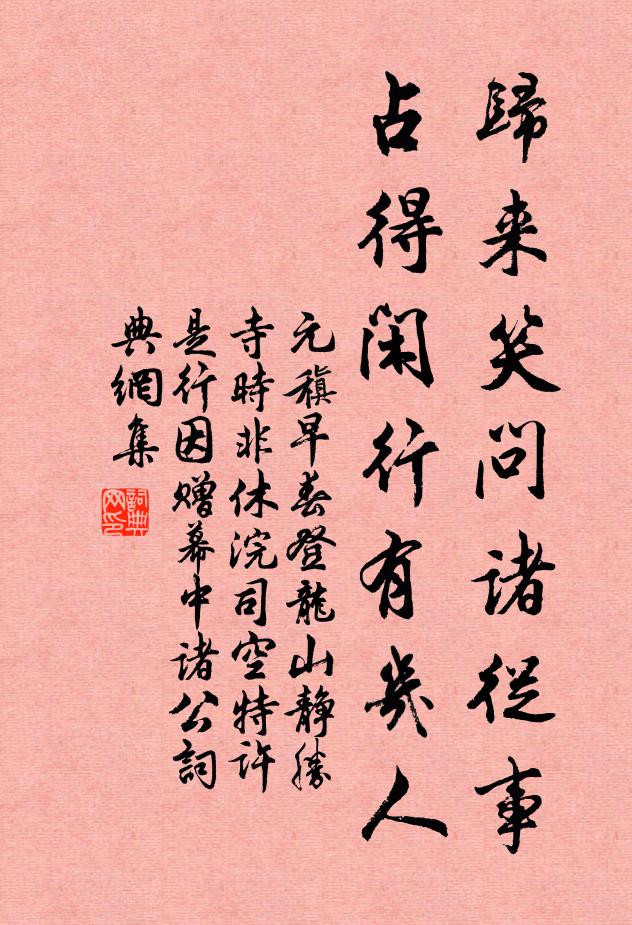 歸来笑问諸從事
占得閑行有幾人
元稹早春登龍山静勝
寺時非休浣司空特許
是行因贈幕中諸公詞
典網集
詞典
网印